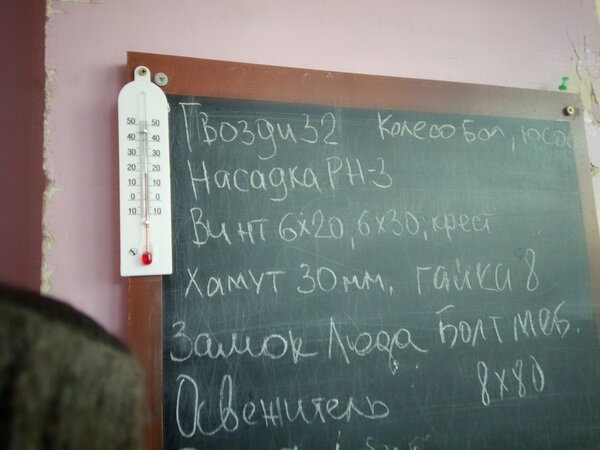 Гвозди 32 Колесо Бол,
Насадка РН-3
Винт 6х20, 6х30, крест
Хамут 30мм, гайки 8
Замок Люда Болт меб.
8х80
Освежитель
50 50
40 40
30 30
20 20
10 10
0 0
10 10